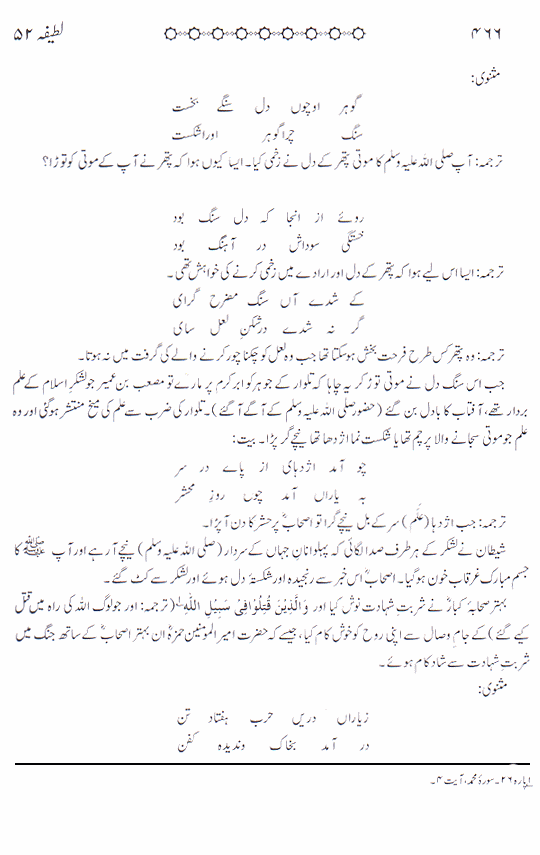 ۴۶۶ لطیفہ ۵۲
مثنوی:
گوہر اوچوں دل سنگے بخست
سنگ چراگوہر اوراشکست
ترجمہ: آپ صلی اللہ علیہ وسلم کا موتی پتھر کے دل نے زخمی کیا۔ ایسا کیوں ہوا کہ پتھر نے آپ کے موتی کو توڑا؟
روئے از انجا کہ دل سنگ بود
خستگی سوداش در آہنگ بود
ترجمہ: ایسا اس لیے ہوا کہ پتھر کے دل اور ارادے میں زخمی کرنے کی خواہش تھی۔
کے شدے آں سنگ مضرح گرای
گر نہ شدے درشکنِ لعل سای
ترجمہ: وہ پتھر کس طرح فرحت بخش ہوسکتا تھا جب وہ لعل کو چکنا چور کرنے والے کی گرفت میں نہ ہوتا۔
جب اس سنگ دل نے موتی توڑ کر یہ چاہا کہ تلوار کے جوہر کو ابر کرم پر مارے تو مصعب بن عمیر جو لشکرِ اسلام کے علم
بردار تھے، آفتاب کا بادل بن گئے (حضور صلی اللہ علیہ وسلم کے آگے آگئے)۔ تلوار کی ضرب سے علم کی میخ منتشر ہوگئی اور وہ
علم جو موتی سجانے والا پرچم تھا یا شکست نما اژدھا تھا نیچے گر پڑا۔ بیت:
چو آمد اژدہای از پاے در سر
بہ یاراں آمد چوں روزِ محشر
ترجمہ: جب اژدہا (عَلَم) سر کے بل نیچے گرا تو اصحابؓ پر حشر کا دن آپڑا۔
شیطان نے لشکر کے ہر طرف صدا لگائی کہ پہلوانانِ جہاں کے سردار (صلی اللہ علیہ وسلم) نیچے آ رہے اور آپ ﷺ کا
جسم مبارک غرقاب خون ہوگیا۔ اصحابؓ اس خبر سے رنجیدہ اور شکستۂ دل ہوئے اور لشکر سے کٹ گئے۔
بہتر صحابۂ کبارؓ نے شربتِ شہادت نوش کیا اور وَالَّذِیْنَ قُتِلُوْا فِیْ سَبِیْلِ اللّٰہِ ۱؎ (ترجمہ: اور جو لوگ اللہ کی راہ میں قتل
کیے گئے) کے جامِ وصال سے اپنی روح کو خوش کام کیا، جیسے کہ حضرت امیرالمؤمنین حمزہؓ ان بہتر اصحابؓ کے ساتھ جنگ میں
شربتِ شہادت سے شاد کام ہوئے۔
مثنوی:
زیاراں دریں حرب ہفتاد تن
در آمد بخاک وندیدہ کفن
۱؎ پارہ ۲۶۔ سورۂ محمد، آیت ۴۔